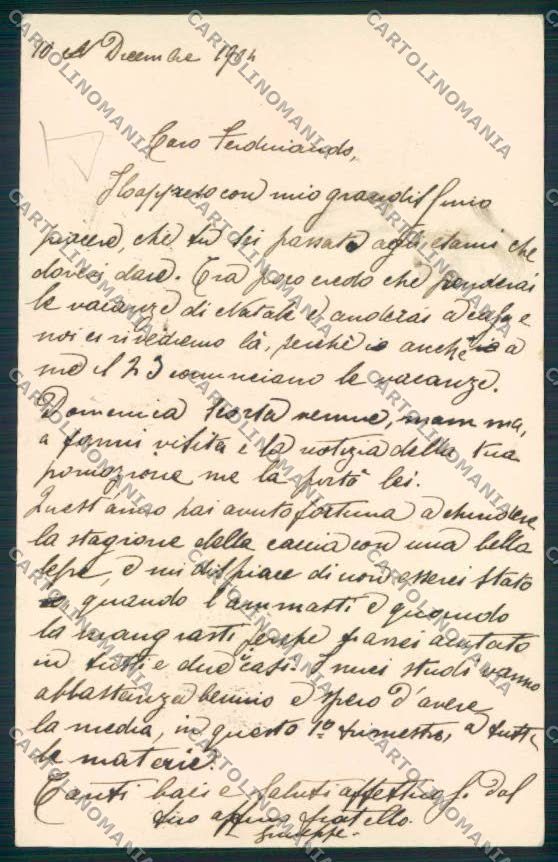 10 Dicembre 1904
Caro Ferdinando,
Ho appreso con mio grandissimo
piacere, che tu sei passato agli esami che
dovevi dare. Fra poco credo che prenderai
le vacanze di Natale e anderai a casa e
noi ci rivedremo là, perchè anche a
me il 23 cominciano le vacanze.
Domenica scorsa venne, mamma,
a farmi visita e la notizia della tua
promozione me la portò lei.
Quest'anno hai avuto fortuna a chiudere
la stagione della caccia con una bella
lepre, e mi dispiace di non esserci stato
quando l'ammasti e quando
la mangiasti perchè t'avrei aiutato
in tutti e due i casi. I miei studi vanno
abbastanza benino e spero d'avere
la media, in questo 1º trimestre, a tutte
le materie.
Tanti baci e saluti affettuosi dal
tuo affmo fratello
Giuseppe.
CARTOLINOMANIA